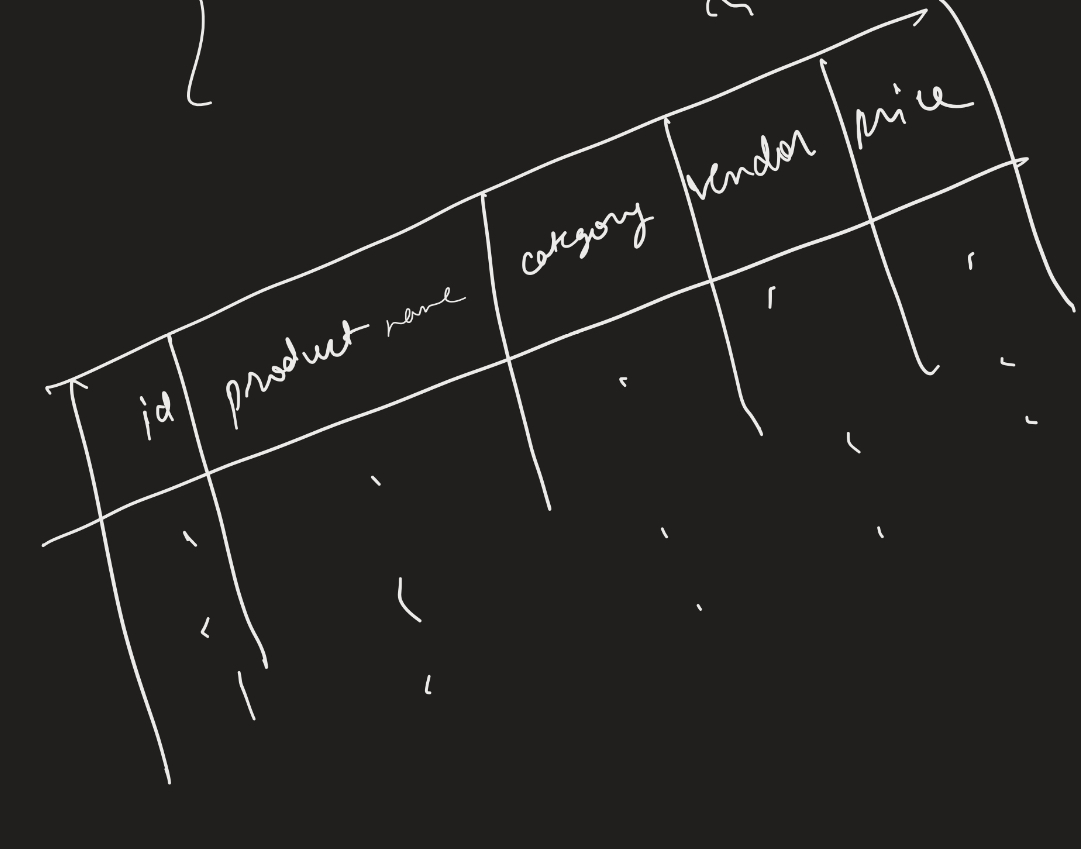 id product name category vendor price